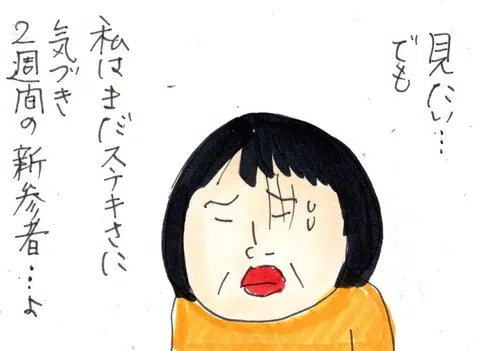 見たい…
でも
私はまだステキさに
気づき
2週間の新参者…よ